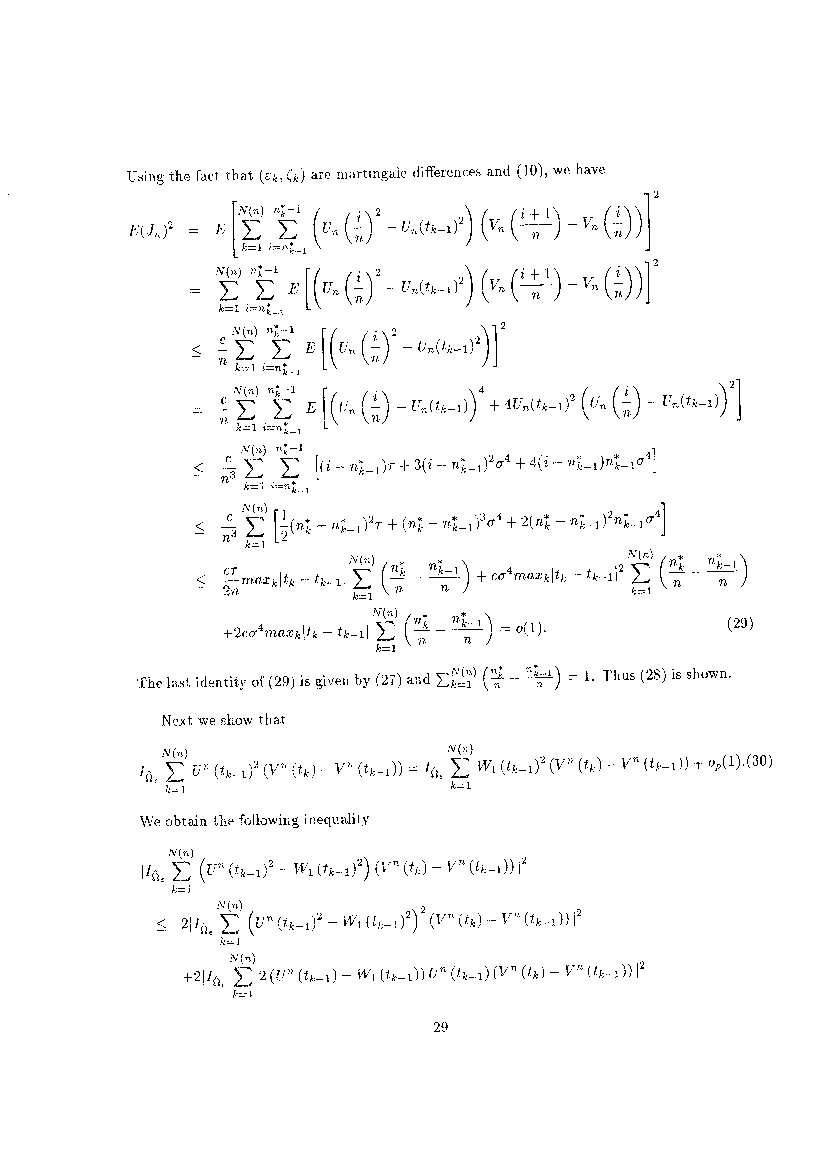 Using the fact that (ε_k, ζ_k) are martingale differences and (10), we have
E(J_n)^2 = E [ ∑_{k=1}^{N(n)} ∑_{i=n*_{k-1}}^{n*_k-1} ( U_n (i/n)^2 - U_n(t_{k-1})^2 ) ( V_n ((i+1)/n) - V_n (i/n) ) ]^2
= ∑_{k=1}^{N(n)} ∑_{i=n*_{k-1}}^{n*_k-1} E [ ( U_n (i/n)^2 - U_n(t_{k-1})^2 ) ( V_n ((i+1)/n) - V_n (i/n) ) ]^2
≤ c/n ∑_{k=1}^{N(n)} ∑_{i=n*_{k-1}}^{n*_k-1} E [ ( U_n (i/n)^2 - U_n(t_{k-1})^2 ) ]^2
= c/n ∑_{k=1}^{N(n)} ∑_{i=n*_{k-1}}^{n*_k-1} E [ ( U_n (i/n) - U_n(t_{k-1}) )^4 + 4U_n(t_{k-1})^2 ( U_n (i/n) - U_n(t_{k-1}) )^2 ]
≤ c/n^3 ∑_{k=1}^{N(n)} ∑_{i=n*_{k-1}}^{n*_k-1} [ (i - n*_{k-1})τ + 3(i - n*_{k-1})^2σ^4 + 4(i - n*_{k-1})n*_{k-1}σ^4 ]
≤ c/n^3 ∑_{k=1}^{N(n)} [ 1/2 (n*_k - n*_{k-1})^2τ + (n*_k - n*_{k-1})^3σ^4 + 2(n*_k - n*_{k-1})^2n*_{k-1}σ^4 ]
≤ cτ/2n max_k|t_k - t_{k-1}| ∑_{k=1}^{N(n)} ( n*_k/n - n*_{k-1}/n ) + cσ^4max_k|t_k - t_{k-1}|^2 ∑_{k=1}^{N(n)} ( n*_k/n - n*_{k-1}/n )
+2cσ^4max_k|t_k - t_{k-1}| ∑_{k=1}^{N(n)} ( n*_k/n - n*_{k-1}/n ) = o(1). (29)
The last identity of (29) is given by (27) and ∑_{k=1}^{N(n)} ( n*_k/n - n*_{k-1}/n ) = 1. Thus (28) is shown.
Next we show that
I_{Ω̂_ε} ∑_{k=1}^{N(n)} U^n (t_{k-1})^2 (V^n (t_k) - V^n (t_{k-1})) = I_{Ω̂_ε} ∑_{k=1}^{N(n)} W_1 (t_{k-1})^2 (V^n (t_k) - V^n (t_{k-1})) + o_p(1).(30)
We obtain the following inequality
|I_{Ω̂_ε} ∑_{k=1}^{N(n)} ( U^n (t_{k-1})^2 - W_1 (t_{k-1})^2 ) (V^n (t_k) - V^n (t_{k-1})) |^2
≤ 2|I_{Ω̂_ε} ∑_{k=1}^{N(n)} ( U^n (t_{k-1})^2 - W_1 (t_{k-1})^2 )^2 (V^n (t_k) - V^n (t_{k-1})) |^2
+2|I_{Ω̂_ε} ∑_{k=1}^{N(n)} 2 (U^n (t_{k-1}) - W_1 (t_{k-1})) U^n (t_{k-1}) (V^n (t_k) - V^n (t_{k-1})) |^2
29